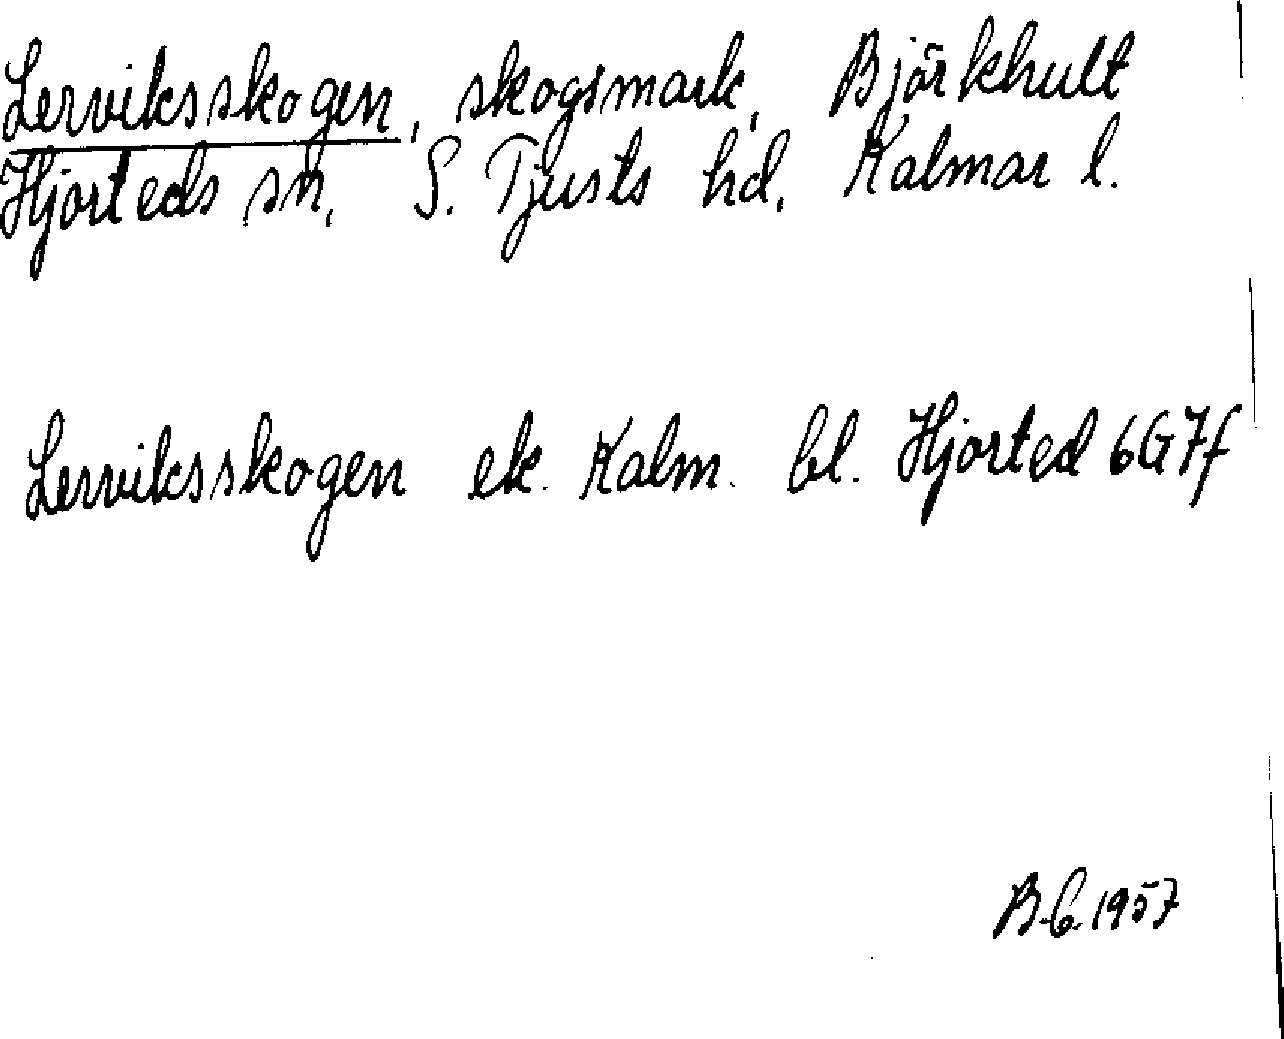 Lerviksskogen, skogsmark, Björkhult
Hjorteds sn, S. Tjusts hd, Kalmar l.
Lerviksskogen ek. Kalm. bl. Hjorted 6G7f
B.C. 1957